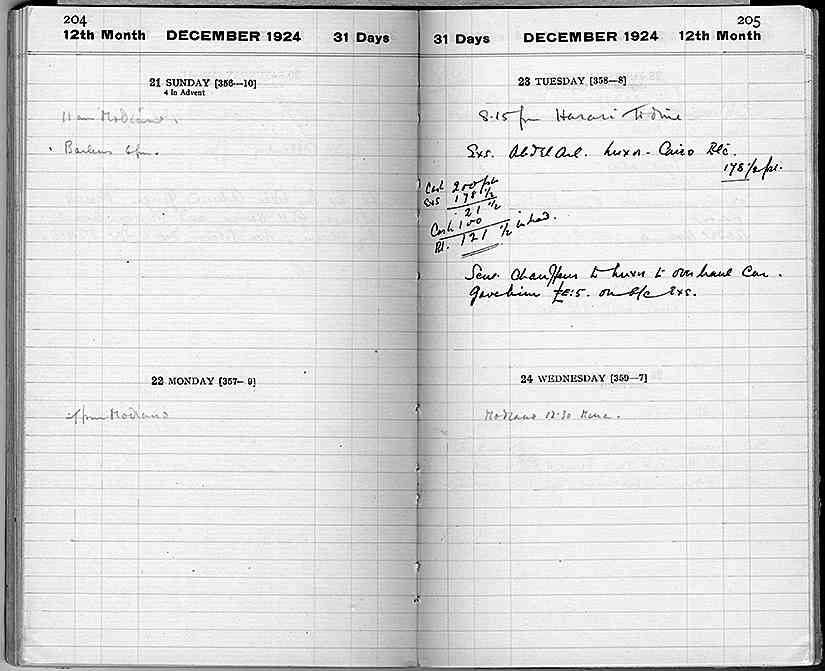 204
12th Month DECEMBER 1924 31 Days
21 SUNDAY [356—10]
4 In Advent
11 am Modiano.
Barbers 6 pm.
22 MONDAY [357—9]
pm Modiano
205
31 Days DECEMBER 1924 12th Month
23 TUESDAY [358—8]
8.15 pm Harari To dine
Exs. Abd el Aal. Luxor - Cairo Etc.
178 1/2 pt.
Cash 200 pt
Exs 178 1/2
21 1/2
Cash 100
Bl. 121 1/2 in hand.
Sent Chauffeur to Luxor to overhaul Car.
Gave him £E:5. on a/c Exs.
24 WEDNESDAY [359—7]
Modiano 12.30 Mena.